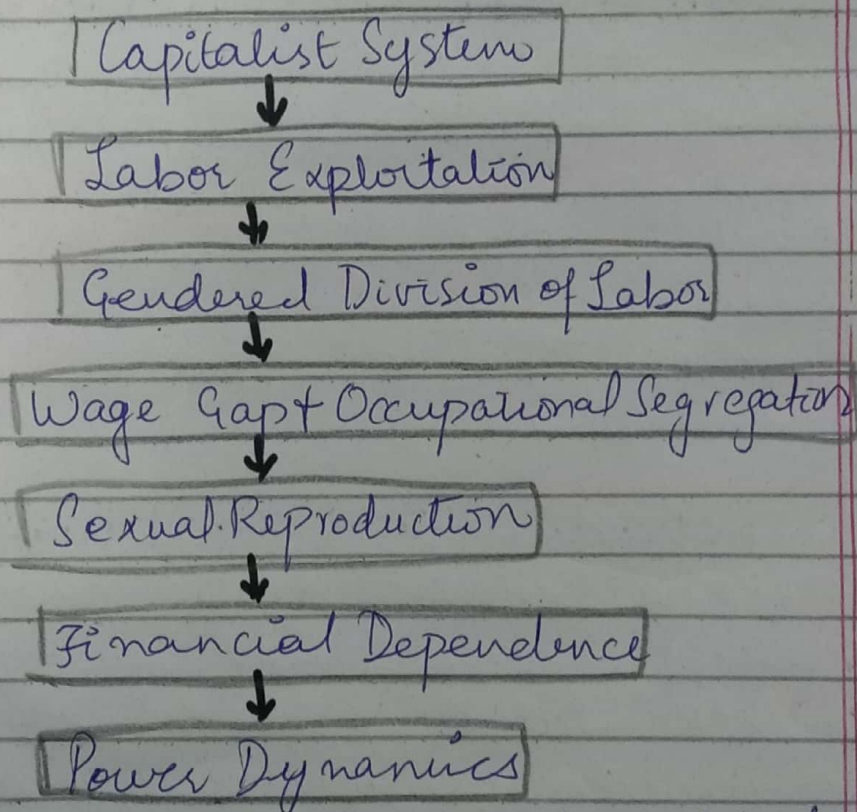 Capitalist System
Labor Exploitation
Gendered Division of Labor
Wage Gap + Occupational Segregation
Sexual Reproduction
Financial Dependence
Power Dynamics